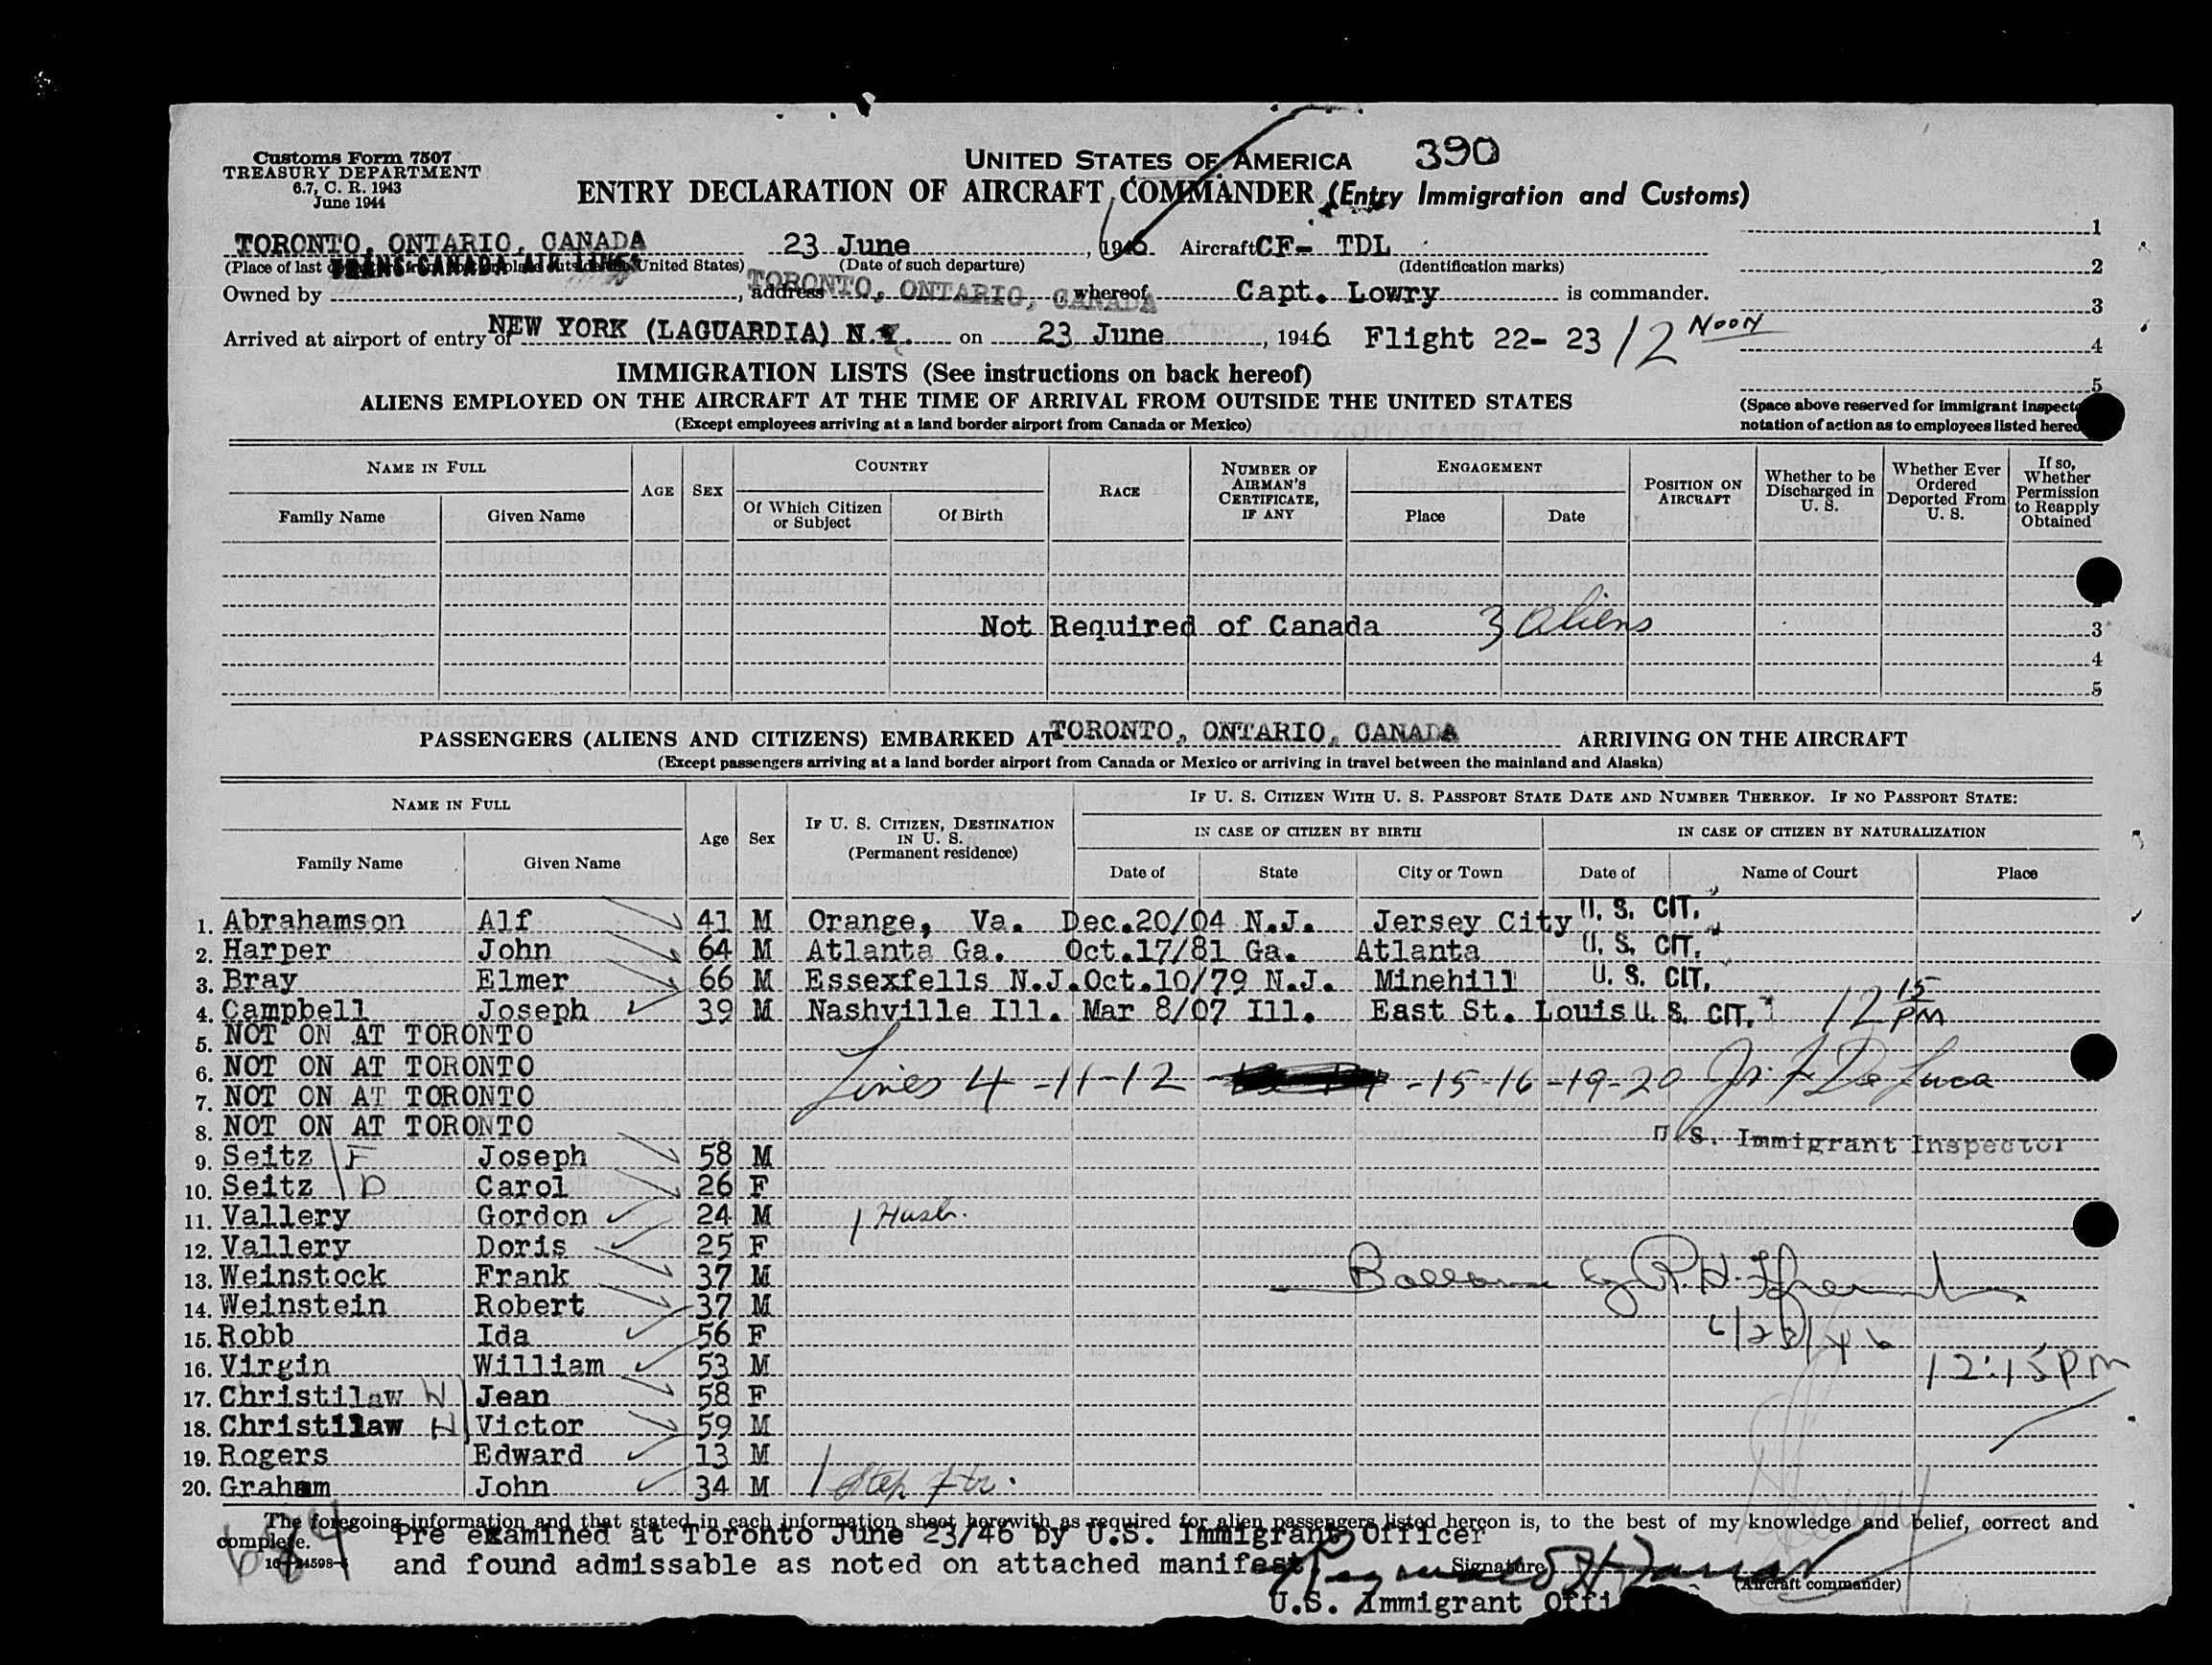 Customs Form 7507
TREASURY DEPARTMENT
6.7, C. R. 1943
June 1944
UNITED STATES OF AMERICA 390
ENTRY DECLARATION OF AIRCRAFT COMMANDER (Entry Immigration and Customs)
TORONTO, ONTARIO, CANADA 23 June, 1946 Aircraft CF- TDL
(Place of last United States) (Date of such departure) (Identification marks)
TRANS-CANADA AIR LINES
Owned by , address TORONTO, ONTARIO, CANADA, whereof Capt. Lowry is commander.
Arrived at airport of entry of NEW YORK (LAGUARDIA) N.Y. on 23 June, 1946 Flight 22- 23 12 NOON
1
2
3
4
5
(Space above reserved for immigrant
notation of action as to employees listed
IMMIGRATION LISTS (See instructions on back hereof)
ALIENS EMPLOYED ON THE AIRCRAFT AT THE TIME OF ARRIVAL FROM OUTSIDE THE UNITED STATES
(Except employees arriving at a land border airport from Canada or Mexico)
NAME IN FULL
Family Name Given Name
AGE SEX
COUNTRY
Of Which Citizen or Subject Of Birth
RACE
NUMBER OF AIRMAN'S CERTIFICATE, IF ANY
ENGAGEMENT
Place Date
POSITION ON AIRCRAFT
Whether to be Discharged in U. S.
Whether Ever Ordered Deported From U. S.
If so, Whether Permission to Reapply Obtained
Not Required of Canada 3 aliens 3
4
5
PASSENGERS (ALIENS AND CITIZENS) EMBARKED AT TORONTO, ONTARIO, CANADA ARRIVING ON THE AIRCRAFT
(Except passengers arriving at a land border airport from Canada or Mexico or arriving in travel between the mainland and Alaska)
NAME IN FULL
Family Name Given Name
Age Sex
IF U. S. CITIZEN, DESTINATION IN U. S. (Permanent residence)
IF U. S. CITIZEN WITH U. S. PASSPORT STATE DATE AND NUMBER THEREOF. IF NO PASSPORT STATE:
IN CASE OF CITIZEN BY BIRTH IN CASE OF CITIZEN BY NATURALIZATION
Date of State City or Town Date of Name of Court Place
1. Abrahamson Alf 41 M Orange, Va. Dec.20/04 N.J. Jersey City U. S. CIT.
2. Harper John 64 M Atlanta Ga. Oct.17/81 Ga. Atlanta U. S. CIT.
3. Bray Elmer 66 M Essexfells N.J. Oct.10/79 N.J. Minehill U. S. CIT.
4. Campbell Joseph 39 M Nashville Ill. Mar 8/07 Ill. East St. Louis U. S. CIT. 12 15 PM
5. NOT ON AT TORONTO
6. NOT ON AT TORONTO Lines 4 -11-12 -15-16-19-20 De Luca
7. NOT ON AT TORONTO
8. NOT ON AT TORONTO U. S. Immigrant Inspector
9. Seitz F Joseph 58 M
10. Seitz D Carol 26 F
11. Vallery Gordon 24 M Husb.
12. Vallery Doris 25 F
13. Weinstock Frank 37 M by R.H.
14. Weinstein Robert 37 M
15. Robb Ida 56 F 6/23/46
16. Virgin William 53 M 12:15 PM
17. Christilaw W Jean 58 F
18. Christilaw H Victor 59 M
19. Rogers Edward 13 M
20. Graham John 34 M Step
The foregoing information and that stated in each information sheet herewith as required for alien passengers listed hereon is, to the best of my knowledge and belief, correct and
complete.
Pre examined at Toronto June 23/46 by U.S. Immigrant Officer
and found admissable as noted on attached manifest
Signature
(Aircraft commander)
U.S. Immigrant Offi